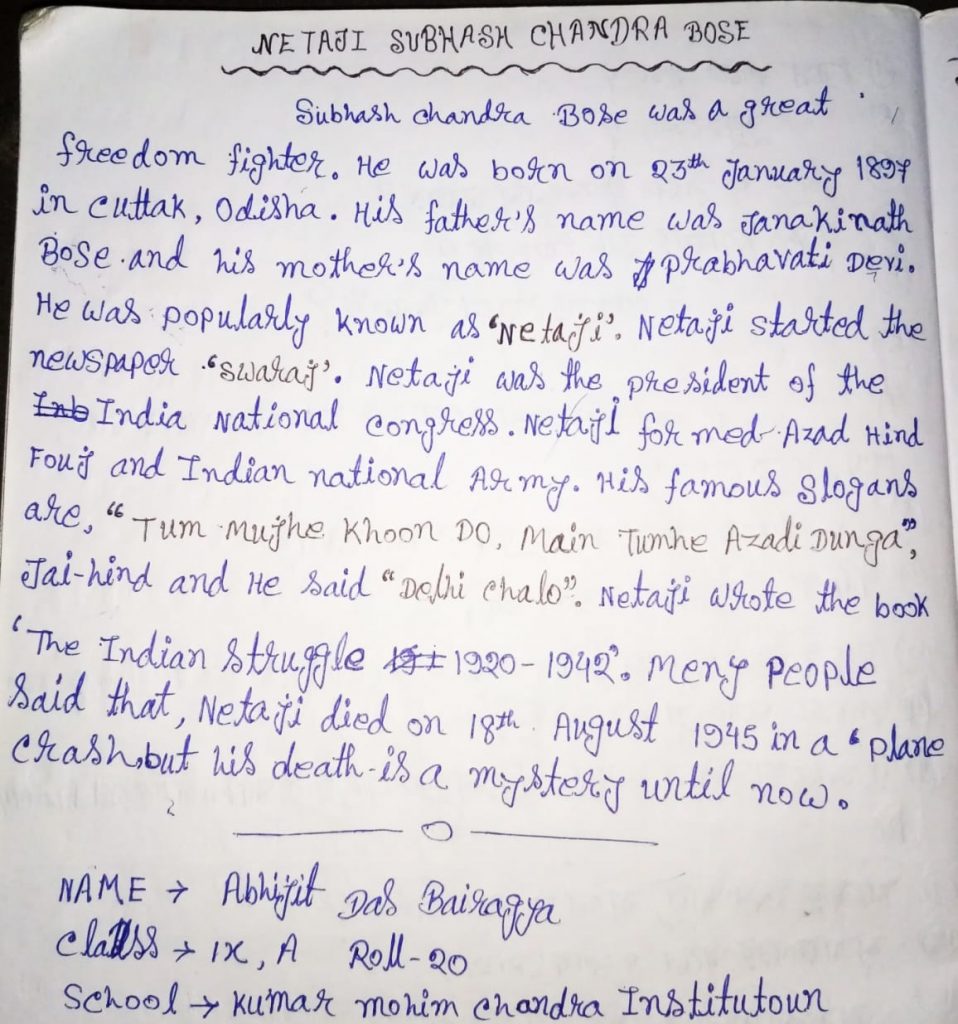 NETAJI SUBHASH CHANDRA BOSE
Subhash chandra Bose was a great
freedom fighter. He was born on 23th January 1897
in cuttak, Odisha. His father's name was Janakinath
Bose and his mother's name was prabhavati Devi.
He was popularly known as 'Netaji'. Netaji started the
newspaper 'Swaraj'. Netaji was the president of the
India National congress. Netaji formed Azad Hind
Fouj and Indian national Army. His famous slogans
are, "Tum Mujhe Khoon DO, Main Tumhe Azadi Dunga",
Jai-hind and He said "Delhi chalo". Netaji wrote the book
'The Indian struggle 1920-1942'. Meny people
said that, Netaji died on 18th August 1945 in a plane
crash, but his death is a mystery until now.
NAME → Abhijit Das Bairagya
Class → IX, A Roll-20
School → Kumar mohim chandra Institutoun